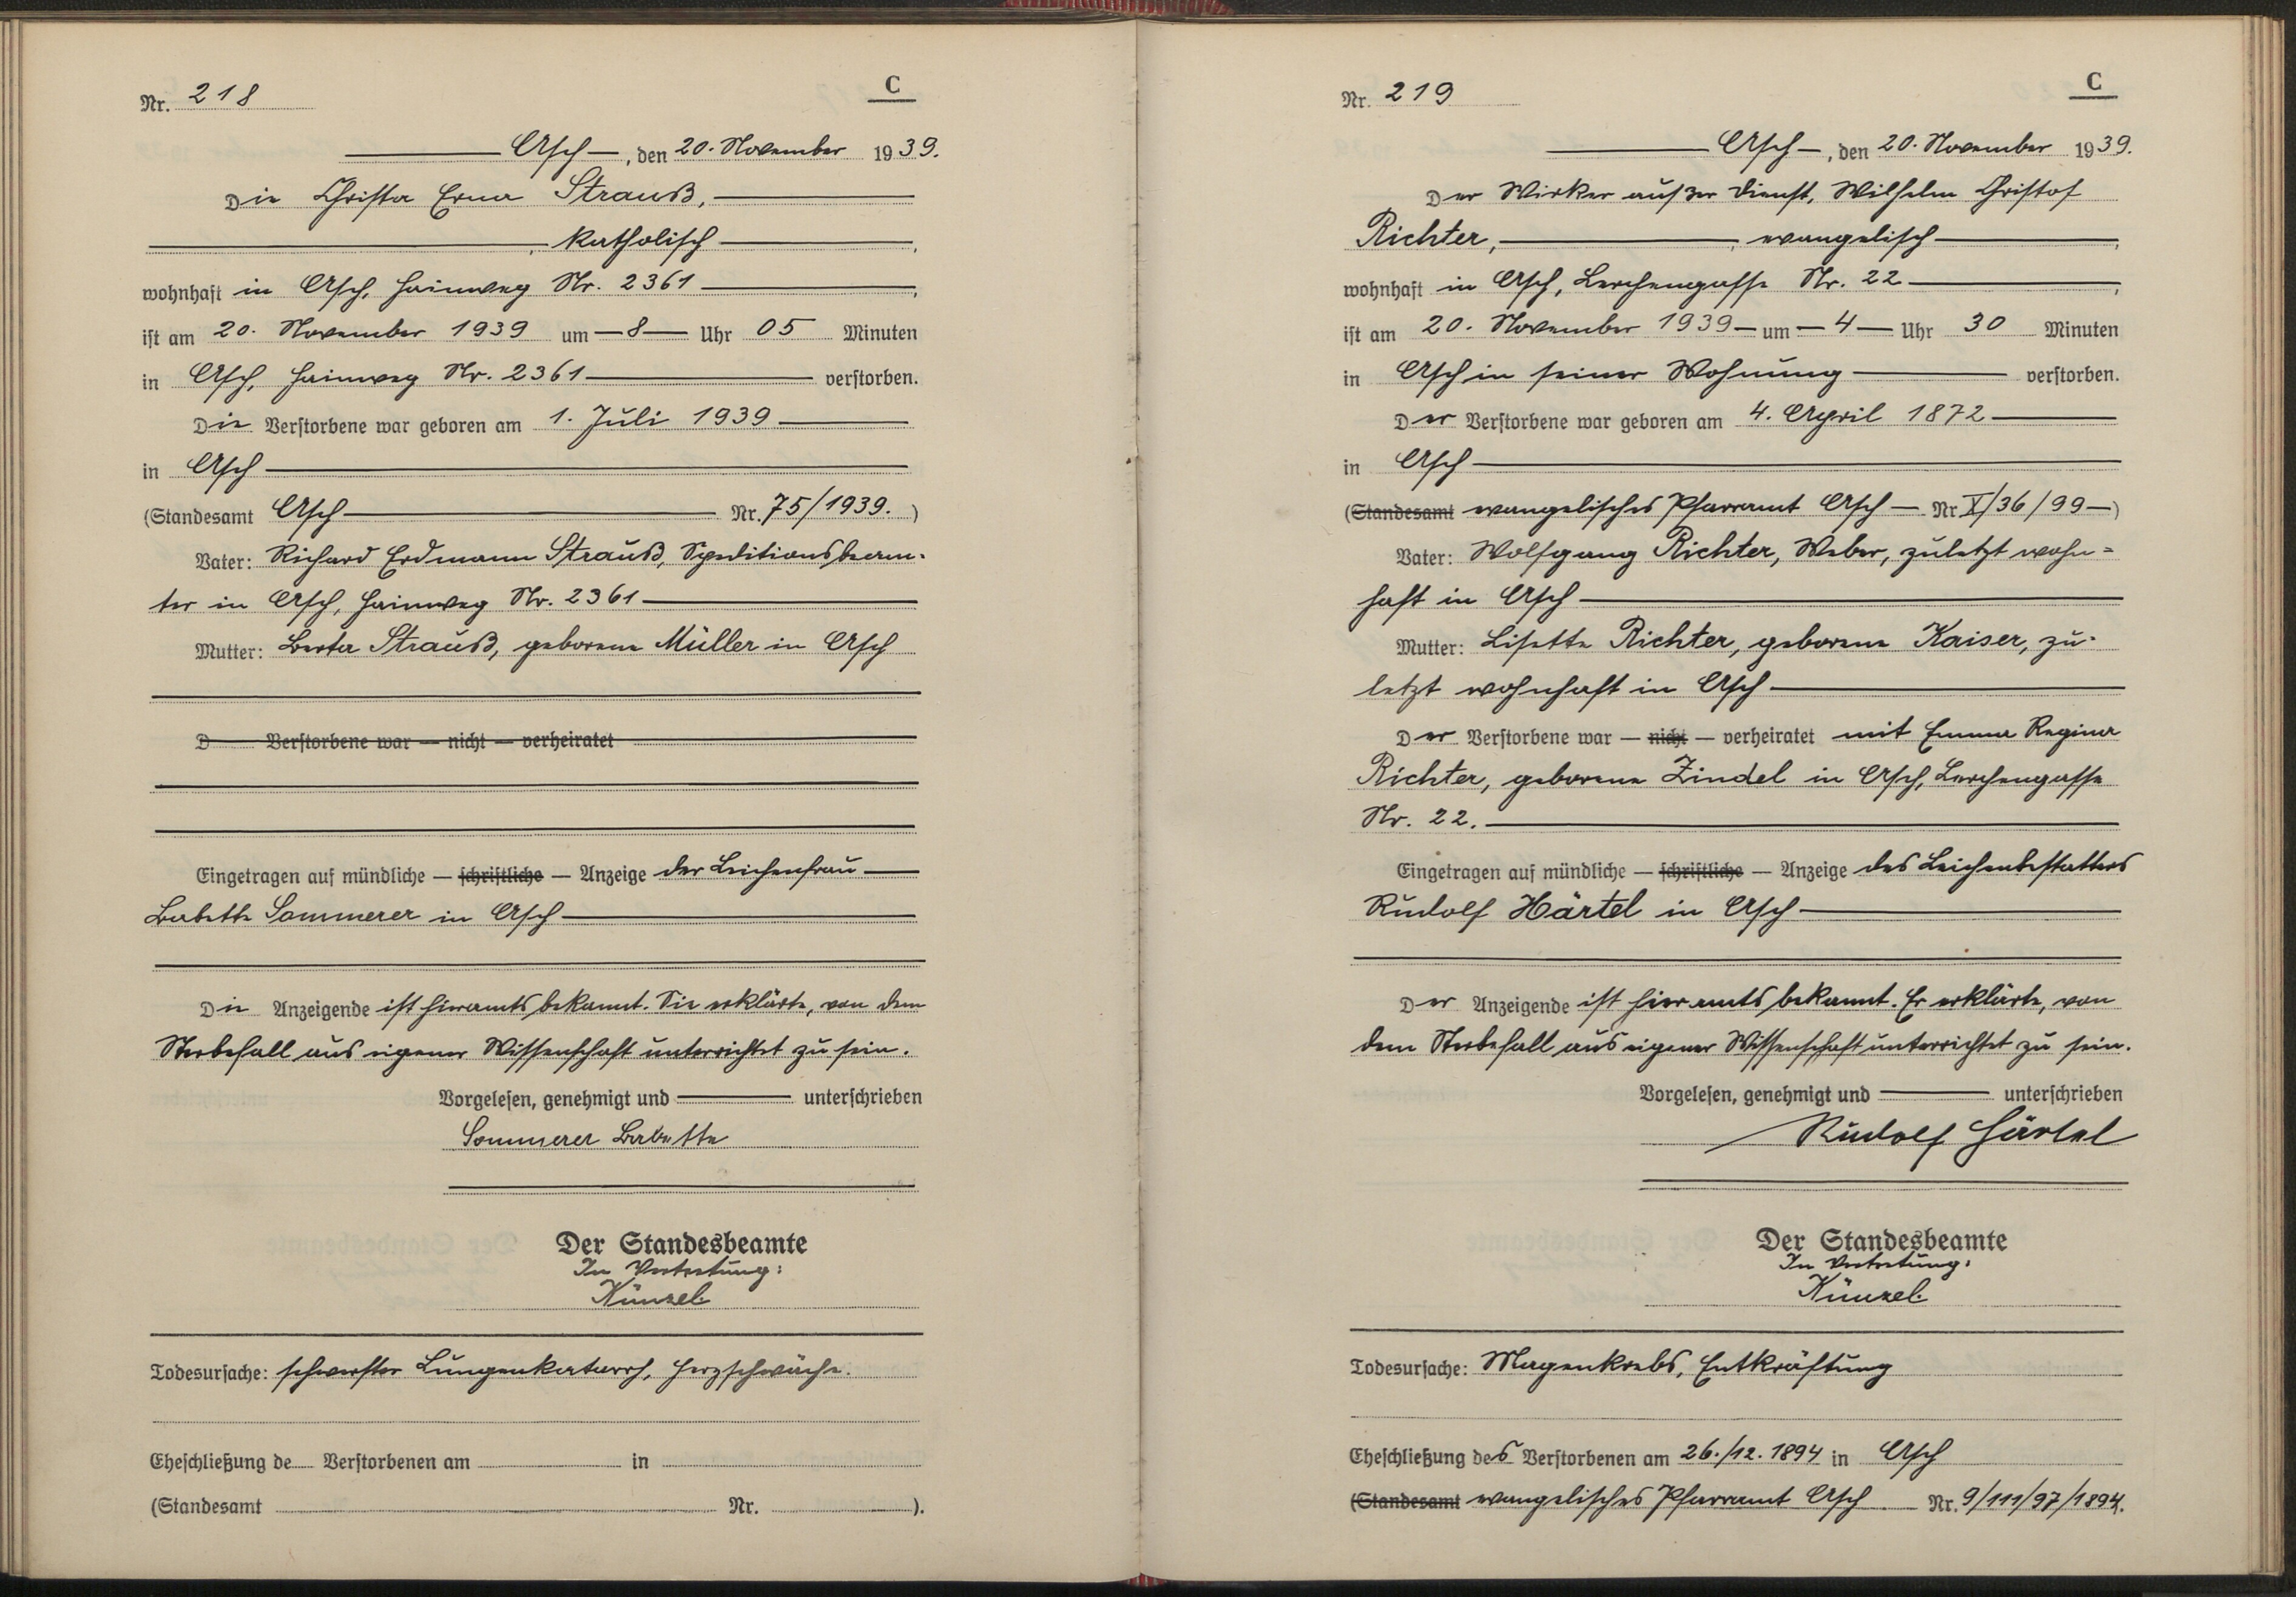 Nr. 218
C
Asch, den 20. November 1939.
Die Christa Erna Strauß,
, katholisch,
wohnhaft in Asch, Hainweg Nr. 2361,
ist am 20. November 1939 um 8 Uhr 05 Minuten
in Asch, Hainweg Nr. 2361 verstorben.
Die Verstorbene war geboren am 1. Juli 1939
in Asch
(Standesamt Asch Nr. 75/1939.)
Vater: Richard Erdmann Strauß, Speditionsbeam-
ter in Asch, Hainweg Nr. 2361
Mutter: Berta Strauß, geborene Müller in Asch
D Verstorbene war — nicht — verheiratet
Eingetragen auf mündliche — schriftliche — Anzeige der Leichenfrau
Babette Sommerer in Asch
Die Anzeigende ist hieramts bekannt. Sie erklärte, von dem
Sterbefall aus eigener Wissenschaft unterrichtet zu sein.
Vorgelesen, genehmigt und unterschrieben
Sommerer Babette
Der Standesbeamte
In Vertretung:
Künzel.
Todesursache: schwerster Lungenkatarrh, Herzschwäche.
Eheschließung de Verstorbenen am in
(Standesamt Nr. ).
Nr. 219
C
Asch, den 20. November 1939.
Der Wirker außer Dienst, Wilhelm Christof
Richter, , evangelisch,
wohnhaft in Asch, Lerchengasse Nr. 22,
ist am 20. November 1939 um 4 Uhr 30 Minuten
in Asch in seiner Wohnung verstorben.
Der Verstorbene war geboren am 4. April 1872
in Asch
(Standesamt evangelisches Pfarramt Asch Nr X/36/99)
Vater: Wolfgang Richter, Weber, zuletzt wohn=
haft in Asch
Mutter: Lisette Richter, geborene Kaiser, zu-
letzt wohnhaft in Asch
Der Verstorbene war — nicht — verheiratet mit Emma Regina
Richter, geborene Zindel in Asch, Lerchengasse
Nr. 22.
Eingetragen auf mündliche — schriftliche — Anzeige des Leichenbestatters
Rudolf Härtel in Asch
Der Anzeigende ist hieramts bekannt. Er erklärte, von
dem Sterbefall aus eigener Wissenschaft unterrichtet zu sein.
Vorgelesen, genehmigt und unterschrieben
Rudolf Härtel
Der Standesbeamte
In Vertretung:
Künzel.
Todesursache: Magenkrebs, Entkräftung
Eheschließung des Verstorbenen am 26./12. 1894 in Asch
(Standesamt evangelisches Pfarramt Asch Nr. 9/111/97/1894.